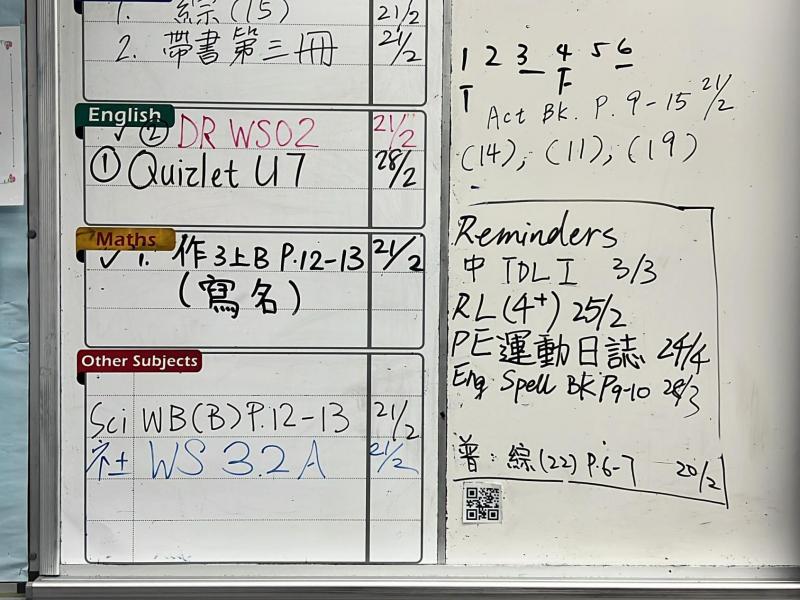 1. 綜(15) 21/2
2. 帶書第三冊 21/2
English
✓ ② DR WS02 21/2
① Quizlet U7 28/2
Maths
✓ 1. 作3上B P.12-13 21/2
(寫名)
Other Subjects
Sci WB(B) P.12-13 21/2
社 WS 3.2A 21/2
1 2 3 4 5 6
T T
Act Bk. P. 9-15 21/2
(14), (11), (19)
Reminders
中 TDL I 3/3
RL (4+) 25/2
PE 運動日誌 24/4
Eng Spell BK P9-10 28/3
普: 綜(22) P.6-7 20/2